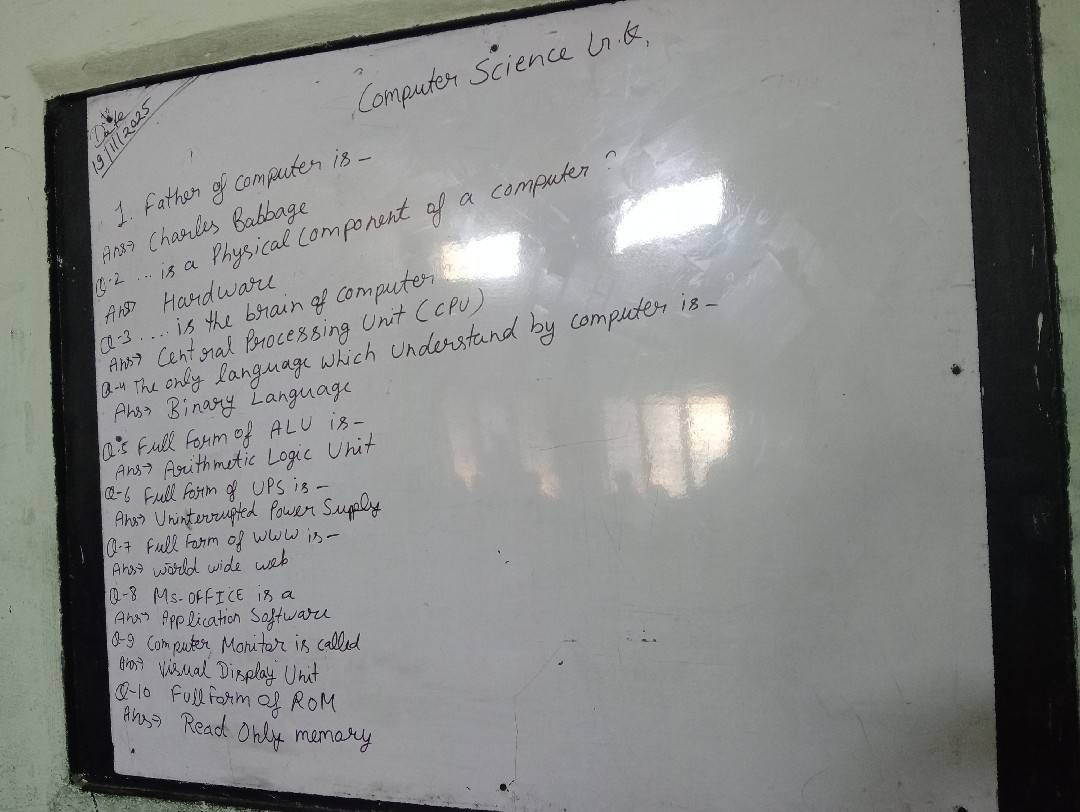 Date
19/11/2025
Computer Science G.K.
1. Father of computer is -
Ans→ Charles Babbage
Q.2 ... is a Physical Component of a computer ?
Ans→ Hardware
Q-3 .... is the brain of computer
Ans→ Central Processing Unit (CPU)
Q-4 The only language which understand by computer is -
Ans→ Binary Language
Q.5 Full Form of ALU is -
Ans→ Arithmetic Logic Unit
Q-6 Full Form of UPS is -
Ans→ Uninterrupted Power Supply
Q-7 Full Form of WWW is -
Ans→ world wide web
Q-8 MS-OFFICE is a
Ans→ Application Software
Q-9 Computer Monitor is called
Ans→ Visual Display Unit
Q-10 Full Form of ROM
Ans→ Read Only memory